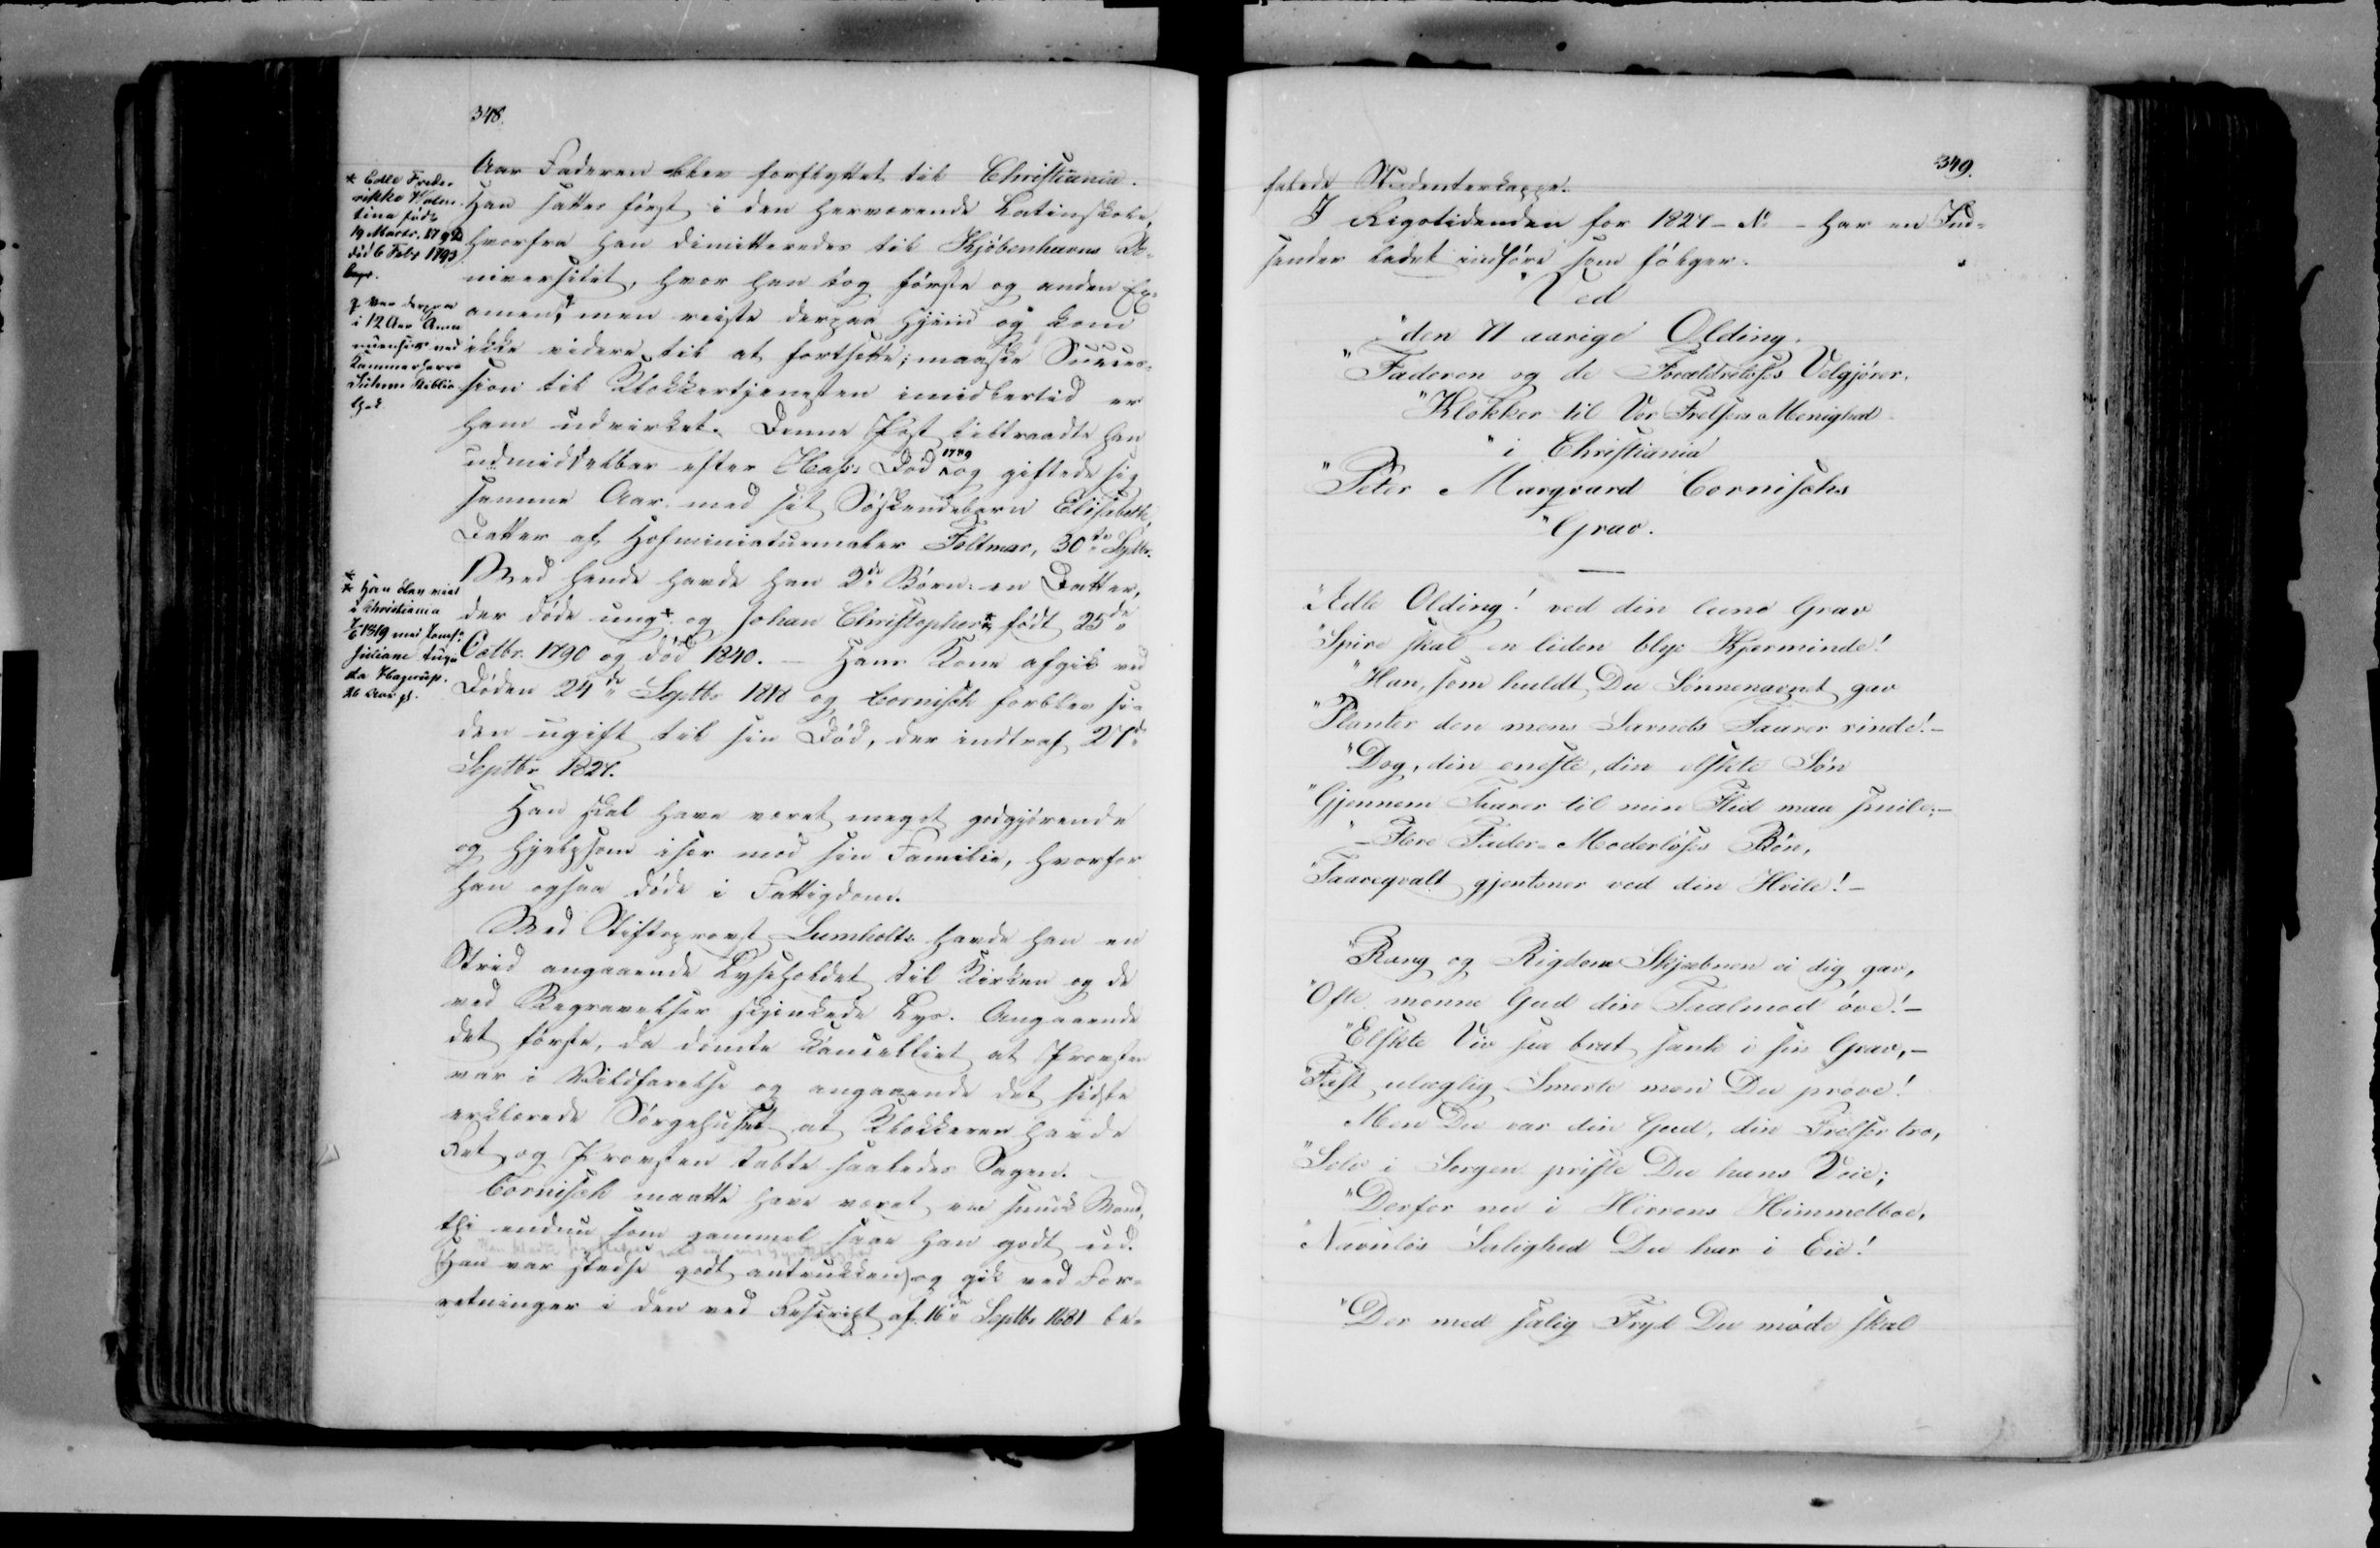 348.
Aar Faderen blev forflyttet til Christiania.
Han sattes først i den herværende Latinskole,
hvorfra han dimitteredes til Kjøbenhavns U-
niversitet, hvor han tog første og anden Ex-
amen, men reiste derpaa hjem og kom
ikke videre til at fortsette; maaske Succes-
sion til Klokkertjenesten imidlertid er
ham udvirket. Denne Post tiltraadte han
umiddelbar efter Død 1789 og giftede sig
samme Aar med sit Søskendebarn Elisabeth,
Datter af Hofminiaturmaler Foltmar, 30te Septbr.
Med hende havde han 2de Børn: en Datter,
der døde ung* og Johan Christopher ** født 25de
Octbr. 1790 og død 1840. – Hans Kone afgik ved
Døden 24de Septbr 1818 og Cornisch forblev si-
den ugift til sin Død, der indtraf 27de
Septbr 1827.
Han skal have været meget godgjørende
og hjelpsom især mod sin Familie, hvorfor
han ogsaa døde i Fattigdom.
Med Stiftsprovst Lumholtz havde han en
Strid angaaende Lyseholdet til Kirken og de
ved Begravelser skjenkede Lys. Angaaende
det første, da dømte Cancelliet at Provsten
var i Vildfarelse og angaaende det sidste
erklærede Sørgehuset at Klokkeren havde
Ret, og Provsten tabte saaledes Sagen.
Cornisch maatte have været en smuk Mand,
thi endnu som gammel saae han godt ud.
(Han var stedse godt antrukken) og gik ved For-
retninger i den ved Rescript af 16de Septbr 1681 be-
* Edle Frede-
rikke Valen-
tina født
19 Marts. 1792
død 6 Febr 1793
† Var derpaa
i 12 Aar Ama-
nuensis ved
Kammerherre
Suhms Biblio-
thek.
** Han blev viet
i Christiania
7/6 1819 med Jomfr.
Juliane Augu-
sta Hagerup.
26 Aar gl.
349.
falede Studenterkappe.
I Rigstidenden for 1827 – No – har en Ind-
sender ladet indføre som følger.
"Ved
"den 71 aarige Olding.
"Faderen og de Forældreløses Velgjører.
"Klokker til Vor Frelsers Menighed
"i Christiania
"Peter Marqvard Cornischs
"Grav.
"Ædle Olding! ved din lune Grav
"Spire skal en liden blye Kjærminde!
"Han, som huldt Du Sønnenavnet gav
"Planter den mens Savnets Taarer rinde! –
"Dog, din eneste, din elskte Søn
"Gjennem Taarer til min Flid maa smile; –
"– Flere Fader-Moderløses Bøn,
"Taareqvalt gjentoner ved din Hvile! –
"Rang og Rigdom Skjæbnen ei dig gav,
"Ofte monne Gud din Taalmod øve! –
"Elskte Viv saa brat sank i sin Grav, –
"Tast ulægelig Smerte mon Du prøve!
Men Du var din Gud, din Frelser tro,
"Selv i Sorgen priste Du hans Veie;
"Derfor nu i Herrens Himmelboe,
"Navnløs Salighed Du har i Eie!
"Der med salig Fryd Du møde skal